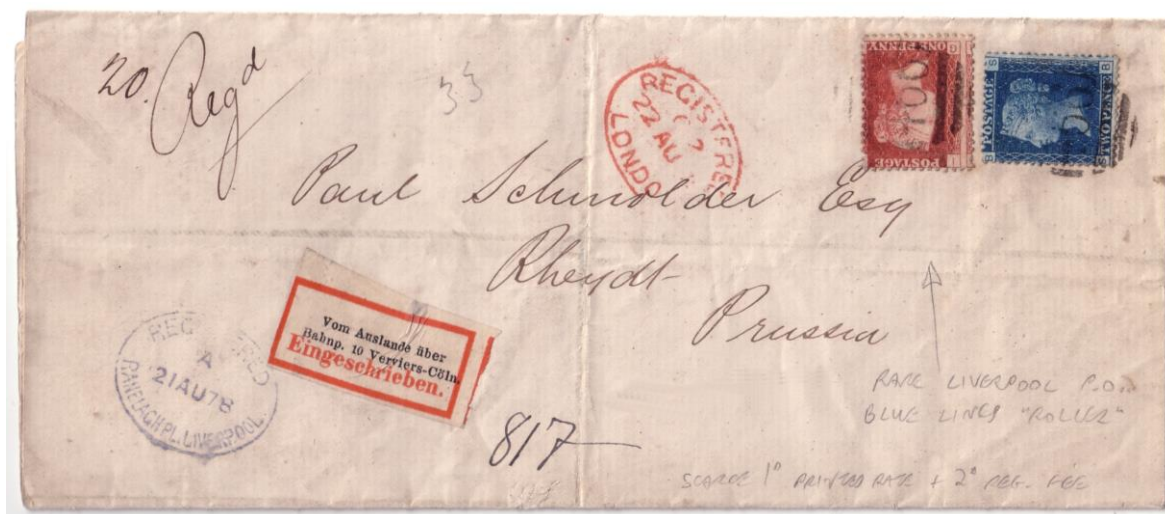 20. Regd
33
REGISTERED
C
2
22 AU
LONDO
ONE PENNY
POSTAGE
466
POSTAGE
Paul Schmolder Esq
Rheydt
Prussia
Vom Auslande über
Bahnp. 10 Verviers-Cöln.
Eingeschrieben.
REG ERED
A
21 AU 78
RANELAGH PL. LIVERPOOL
817
RARE LIVERPOOL P.O.
BLUE LINES "ROLLER"
SCARCE 1D PRINTED RATE + 2D REG. FEE